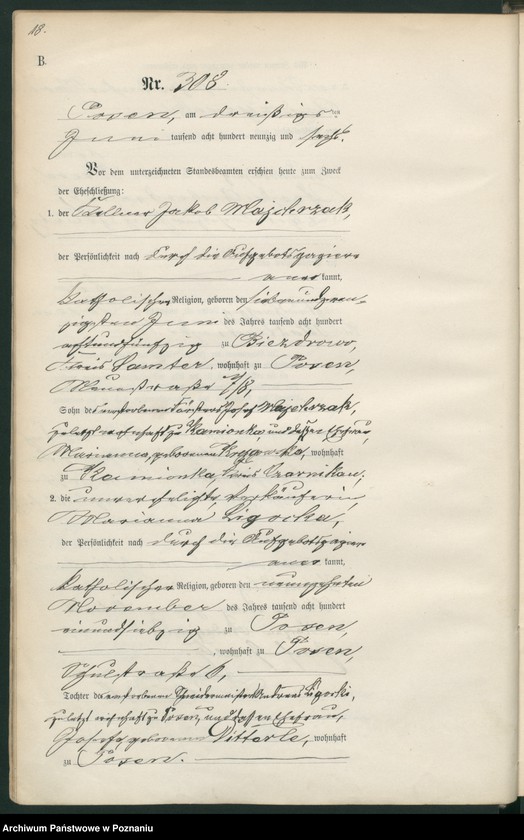 18.
B.
Nr. 308.
Posen, am dreißigsten
Juni tausend acht hundert neunzig und sechs.
Vor dem unterzeichneten Standesbeamten erschien heute zum Zweck
der Eheschließung:
1. der Kellner Jakob Majchrzak,
der Persönlichkeit nach durch die Aufgebotspapiere
aner kannt,
katholischer Religion, geboren den siebenundzwan-
zigsten Juni des Jahres tausend acht hundert
achtundfünfzig zu Biezdrowo,
Kreis Samter, wohnhaft zu Posen,
Neuestraße 7/8,
Sohn des verstorbenen Försters Josef Majchrzak,
zuletzt wohnhaft zu Kamionka, und dessen Ehefrau,
Marianna, geborenen, wohnhaft
zu Kamionka, Kreis Czarnikau,
2. die unverehelichte, Verkäuferin,
Marianna Ligocka,
der Persönlichkeit nach durch die Aufgebotspapiere
aner kannt,
katholischer Religion, geboren den neunzehnten
November des Jahres tausend acht hundert
einundsiebzig zu Posen,
, wohnhaft zu Posen,
Schulstraße 6,
Tochter des verstorbenen Schneidermeisters Andreas Ligocki,
zuletzt wohnhaft zu Posen, und dessen Ehefrau,
Josefa, geborenen Ditterle, wohnhaft
zu Posen.
Archiwum Państwowe w Poznaniu